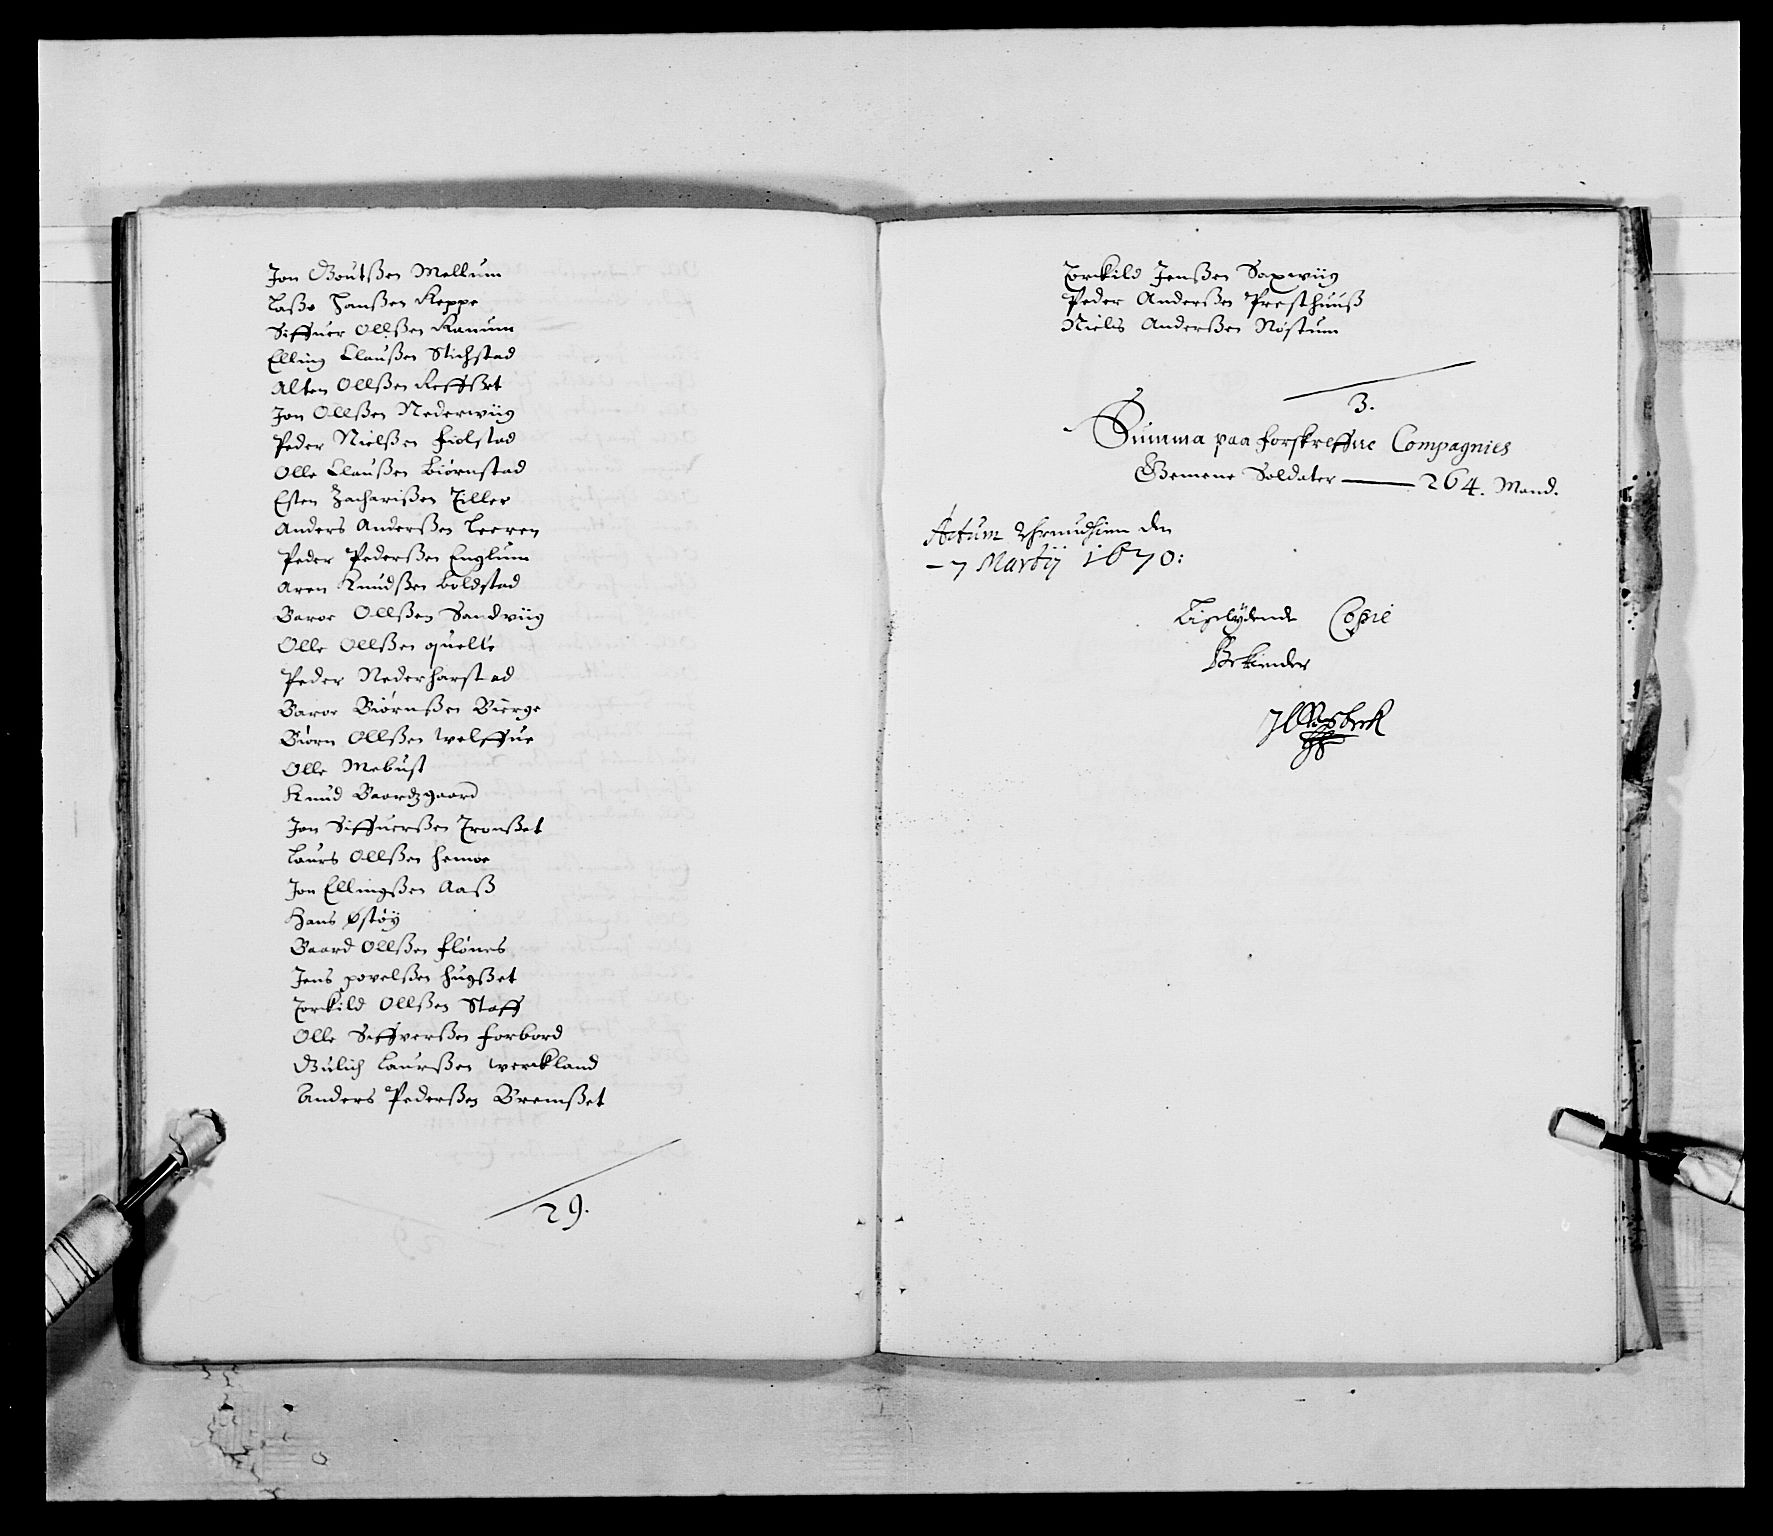 Jon Goutßen Mellum
Laße Hanßen Reppe
Siffuer Ollßen Ranum
Elling Claußen Stichstad
Alten Ollßen Reffßet
Jon Ollßen Nederwiig
Peder Nielßen Fiolstad
Olle Claußen Biørnstad
Esten Zacharißen Tiller
Anders Anderßen Leeren
Peder Pederßen Englum
Aren Knudßen Boldstad
Baroe Ollßen Sandviig
Olle Ollßen quelte
Peder Nederharstad
Baroe Biørnßen Bierge
Biørn Ollßen Welffue
Olle Mebust
Knud Baardzgaard
Jon Siffuerßen Tronßet
Laurs Ollßen Hemoe
Jon Ellingßen Aaß
Hans Østøy
Baard Ollßen Flønes
Jens povelßen Hugßet
Torkild Ollßen Staff
Olle Siffverßen Forbord
Gulich Laurßen Werckland
Anders Pederßen Bremßet
29.
Torkild Jenßen Saxwiig
Peder Anderßen Presthuuß
Niels Anderßen Nøstum
3.
Summa paa forskreffne Compagnies
Gemene Soldater — 264. Mand.
Actum Thrundhiem den
-7 Martij 1670:
Ligelydende Copie
Bekiender